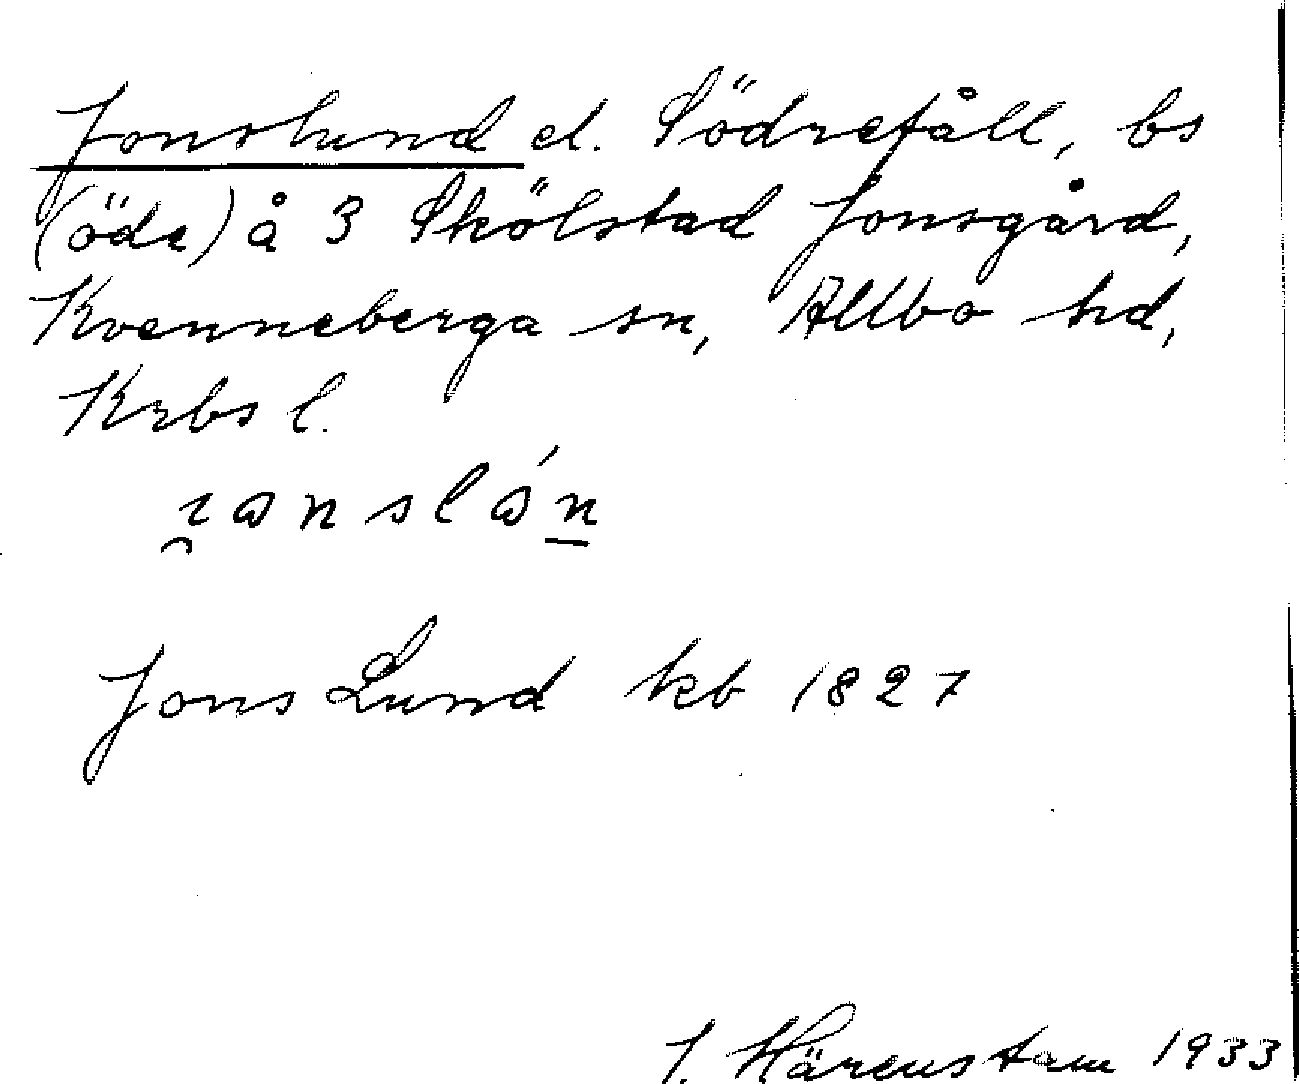 Jonslund el. Södrefåll, bs
(öde) å 3 Skölstad Jonsgård,
Kvenneberga sn, Allbo hd,
Krbs l.
Jons Lund kb 1827
J. Härenstam 1933